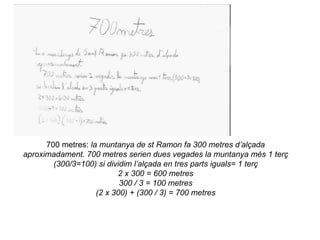 700 metres
La muntanya de Sant Ramon fa 300 metres d'alçada
aproximadament.
700 metres serien 2 vegades la muntanya més 1 terç (300/3=100)
si dividim l'alçada en 3 parts iguals = 1 terç.
2 x 300 = 600 metres
300 ÷ 3 = 100 metres
(2 x 300) + (300 ÷ 3) = 700 metres
700 metres: la muntanya de st Ramon fa 300 metres d'alçada
aproximadament. 700 metres serien dues vegades la muntanya més 1 terç
(300/3=100) si dividim l'alçada en tres parts iguals= 1 terç
2 x 300 = 600 metres
300 / 3 = 100 metres
(2 x 300) + (300 / 3) = 700 metres